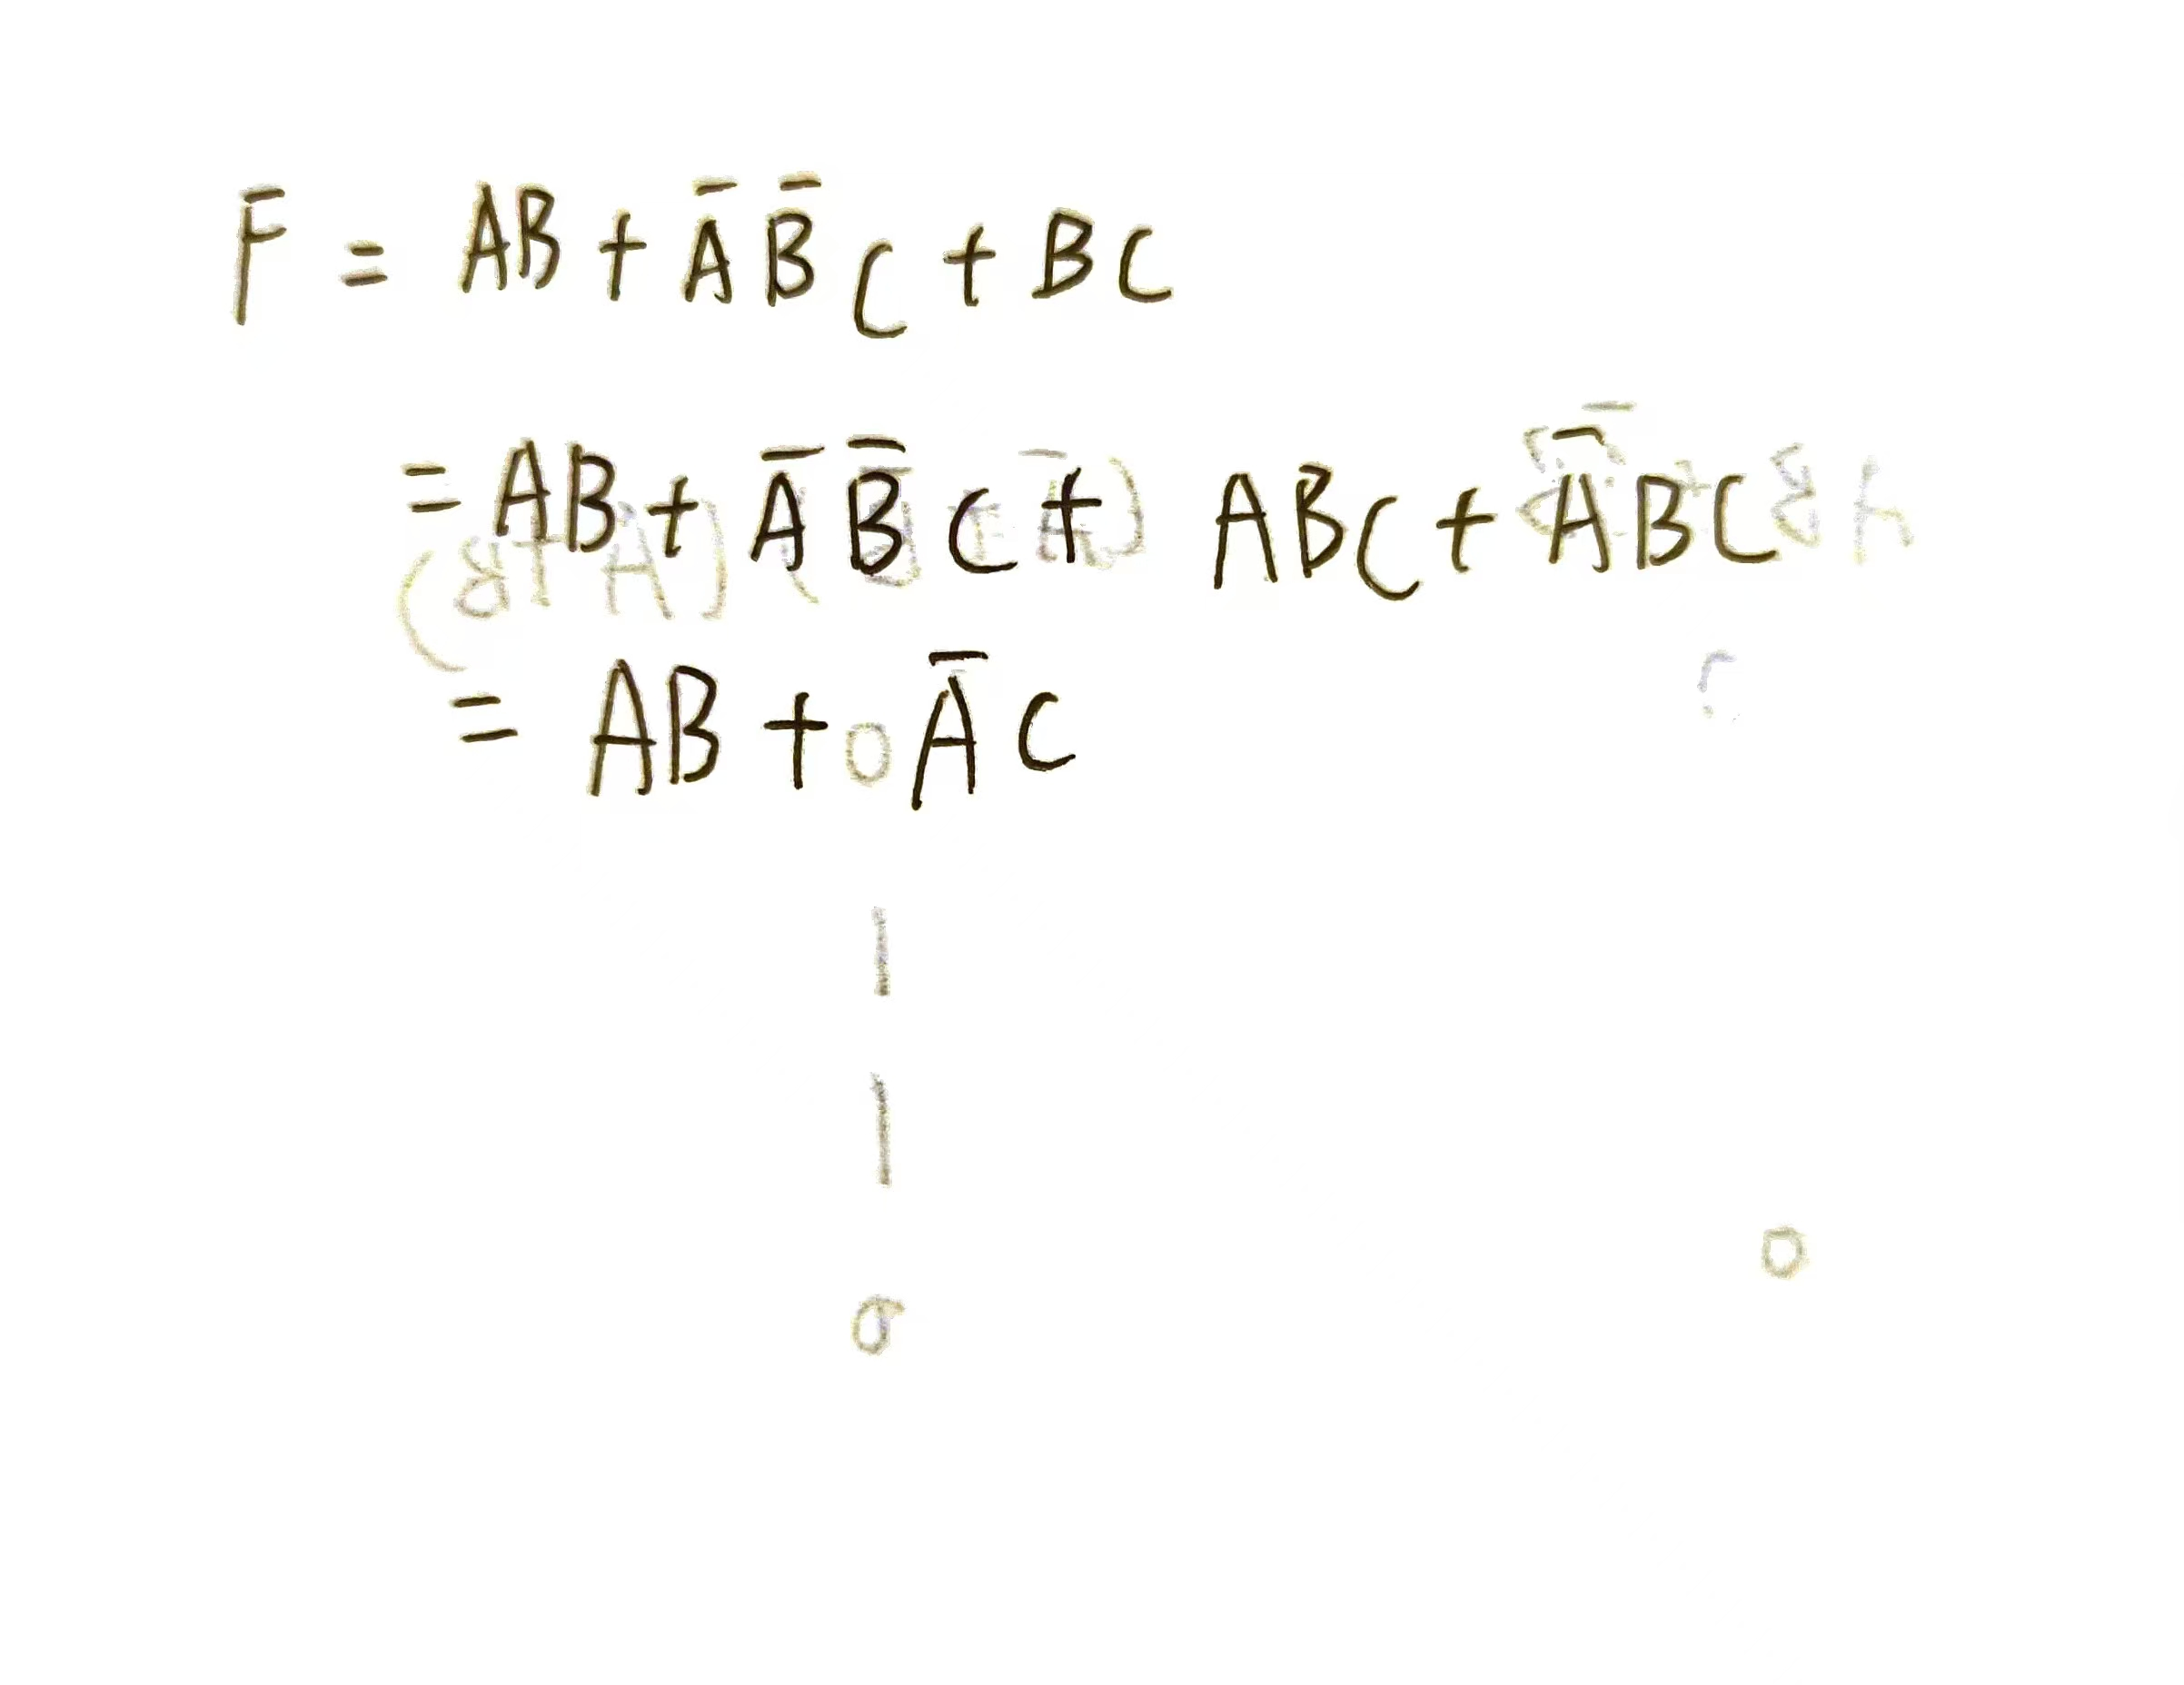 F = AB + A̅ B̅ C + BC
= AB + A̅ B̅ C + ABC + A̅ BC
= AB + A̅ C